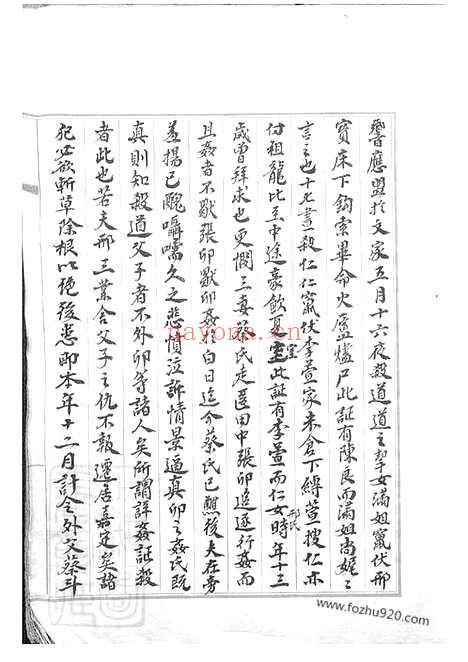 響應盟於文家五月十六夜殺道道之挈女滿姐竄伏邢
寶床下鉤索畢命火廬爐尸此証有陳良而滿姐尚娓娓
言之也十七晝殺仁仁竄伏李萱家米倉下縛萱搜仁亦
付祖龍比至中途豪飲夏室此証有李萱而仁女時年十三
邢氏
歲曾拜求也更憫三妾蔡氏走匿田中張卯追逐行姦而
且姦者不厭張卯獸卯姦于白日迄今蔡氏已醮後夫在旁
羞揚已醜囁嚅久之悲憤泣訴情景逼真卯之姦氏既
真則知殺道父子者不外卯等諸人矣所謂詳姦証殺
者此也若夫邢三業舍父子之仇不報遷居嘉定矣諸
犯必欲斬草除根以絕後患即本年十二月計令外父蔡斗
nayona.cn
www.fozhu920.com